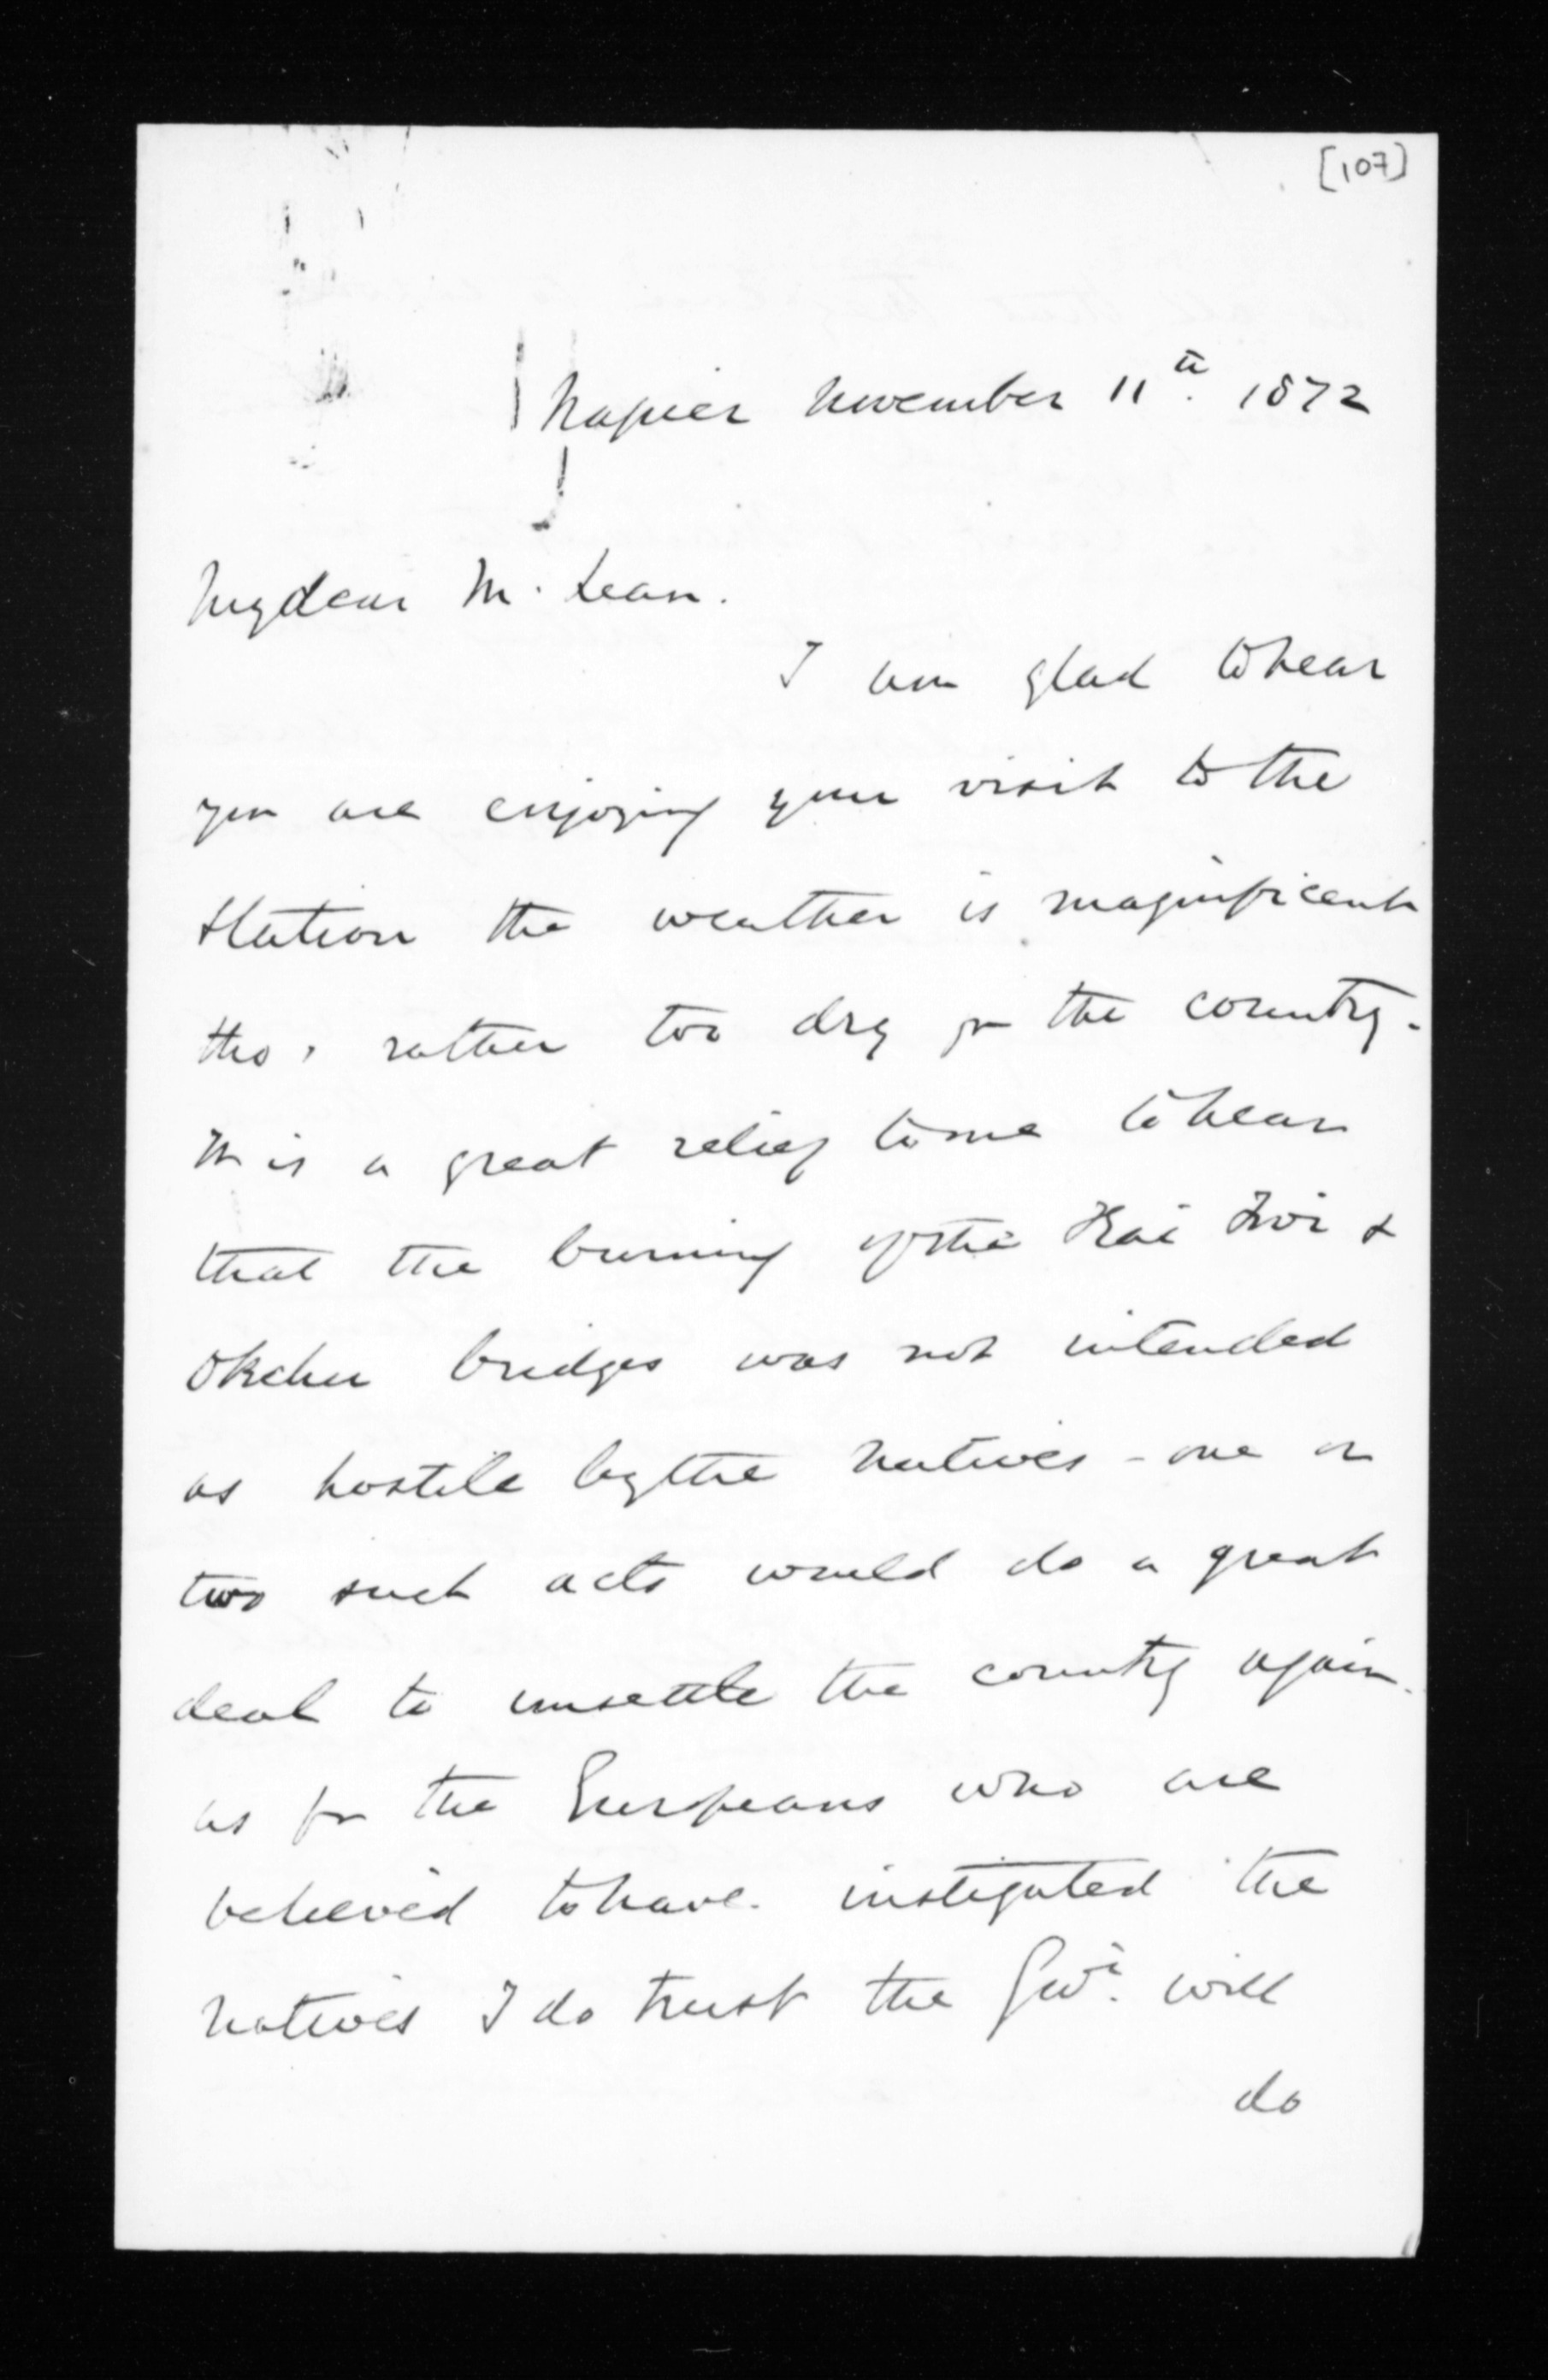 [107]
Napier November 11th. 1872
My dear McLean.
I am glad to hear
you are enjoying your visit to the
Station the weather is magnificent
tho' rather too dry for the country.
It is a great relief to me to hear
that the burning of the Kai Iwi &
Okehu bridges was not intended
as hostile by the Natives - one or
two such acts would do a great
deal to unsettle the country again.
as for the Europeans who are
believed to have instigated the
Natives I do trust the Govt. will
do